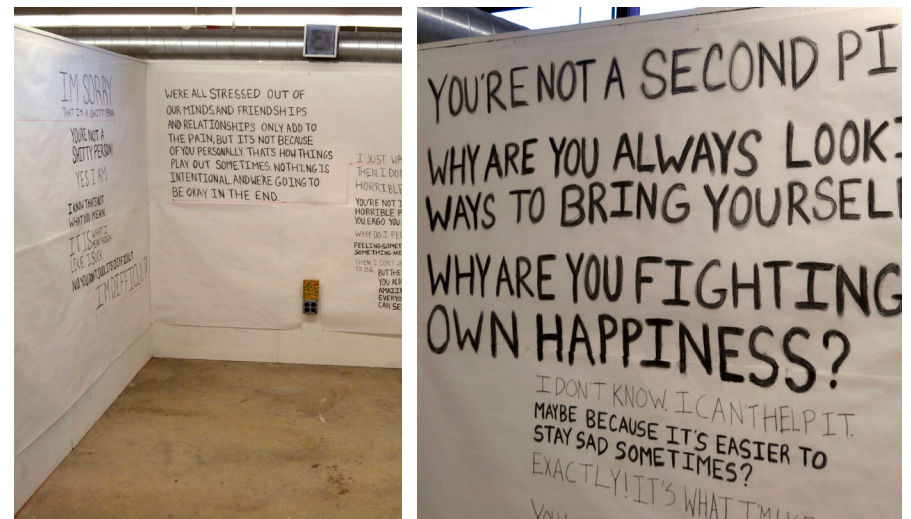 IM SORRY
THAT IM A SHITTY PERSON
YOU'RE NOT A
SHITTY PERSON!
YES I AM.
I KNOW THATS NOT
WHAT YOU MEAN
IT IS WHAT I
LIKE I SUCK
NO YOU DON'T YOU'RE DIFFICULT
I'M DIFFICULT
WE'RE ALL STRESSED OUT OF
OUR MINDS AND FRIENDSHIPS
AND RELATIONSHIPS ONLY ADD TO
THE PAIN, BUT IT'S NOT BECAUSE
OF YOU PERSONALLY. THATS HOW THINGS
PLAY OUT SOMETIMES. NOTHING IS
INTENTIONAL AND WERE GOING TO
BE OKAY IN THE END.
I JUST WA
THEN I DON
HORRIBLE
YOU'RE NOT
HORRIBLE P
YOU ERGO YOU
WHY DO I FEE
FEELING SOMET
SOMETHING
THEN I DON'T
TO BE.
BUT THE
YOU
AMAZIN
EVERYO
CAN SE
YOU'RE NOT A SECOND PI
WHY ARE YOU ALWAYS LOOKI
WAYS TO BRING YOURSEL
WHY ARE YOU FIGHTING
OWN HAPPINESS?
I DON'T KNOW. I CAN'T HELP IT.
MAYBE BECAUSE IT'S EASIER TO
STAY SAD SOMETIMES?
EXACTLY! IT'S WHAT I'M USE
YOU